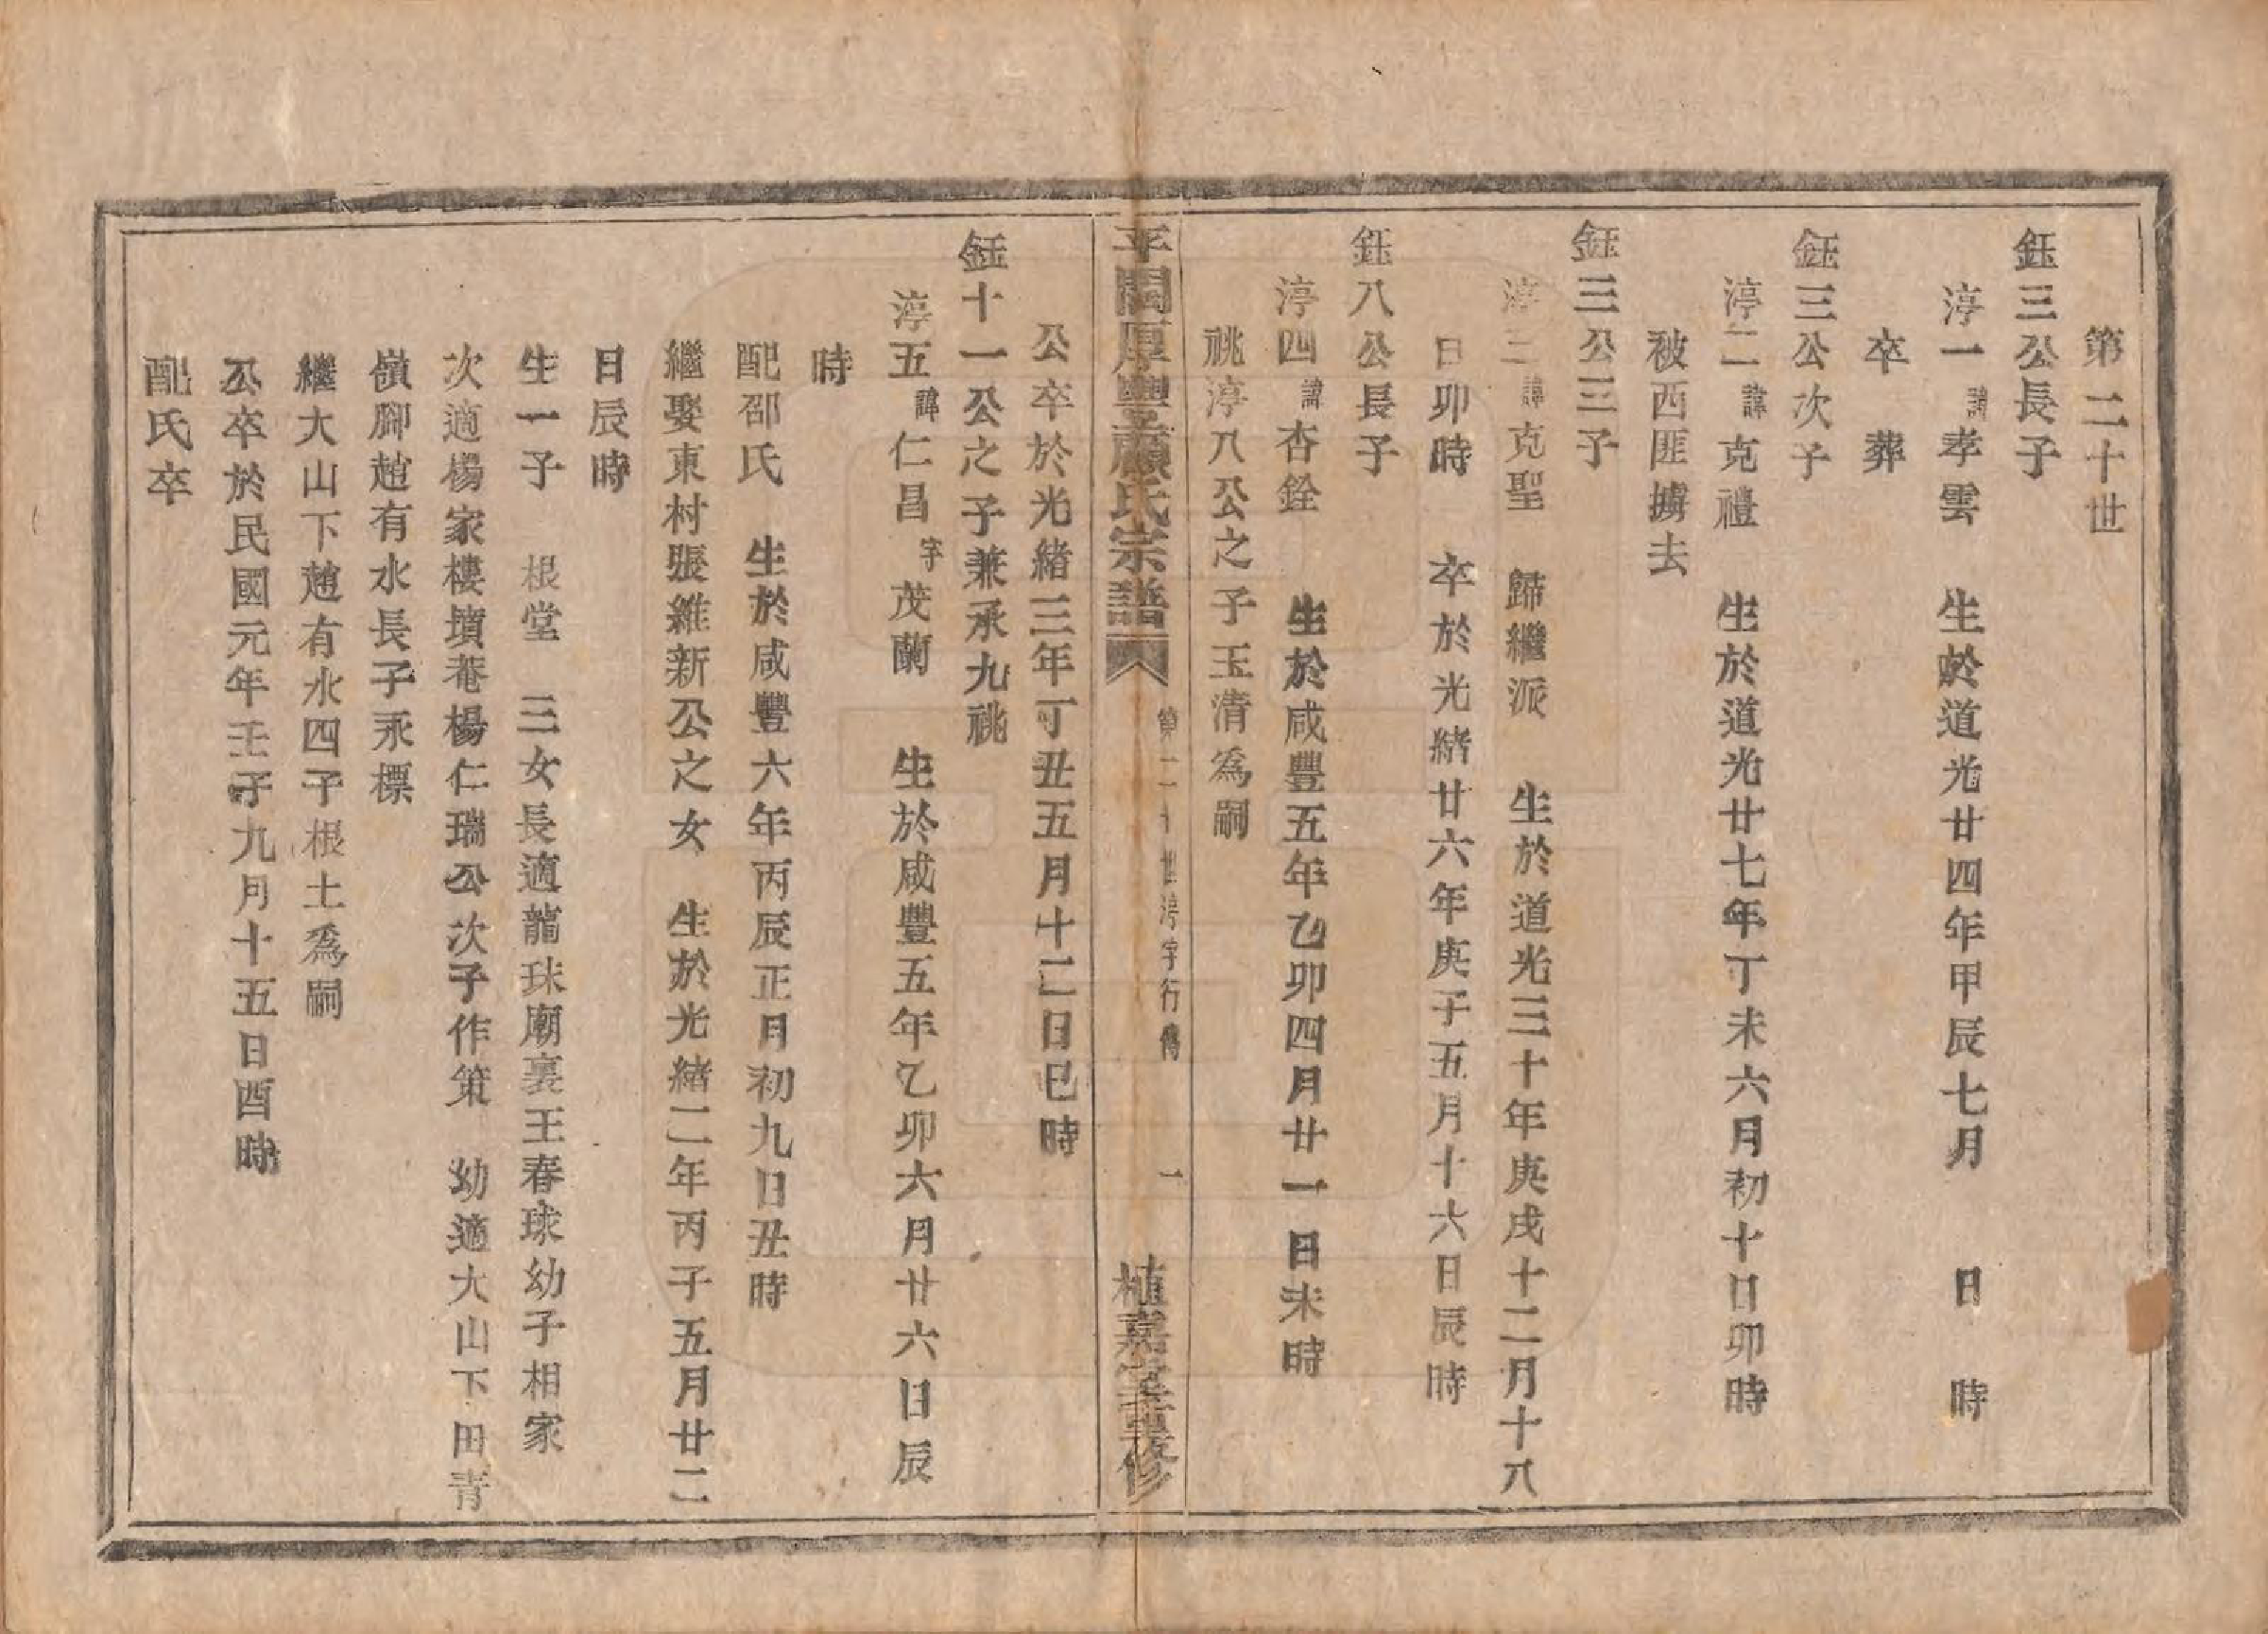 第二十世
鈺三公長子
淳一諱孝雲　生於道光廿四年甲辰七月　日　時
卒　葬
鈺三公次子
淳二諱克禮　生於道光廿七年丁未六月初十日卯時
被西匪擄去
鈺三公三子
淳三諱克聖　歸繼派　生於道光三十年庚戌十二月十八
日卯時　卒於光緒廿六年庚子五月十六日辰時
鈺八公長子
淳四諱杏銓　生於咸豐五年乙卯四月廿一日未時
祧淳八公之子玉清為嗣
厚豐顧氏宗譜
第二十世淳字行傳
一
植嘉堂重修
公卒於光緒三年丁丑五月十二日巳時
鈺十一公之子兼承九祧
淳五諱仁昌字茂蘭　生於咸豐五年乙卯六月廿六日辰
時
配邵氏　生於咸豐六年丙辰正月初九日丑時
繼娶東村張維新公之女　生於光緒二年丙子五月廿二
日辰時
生一子　根堂　三女長適龍珠廟裏王春球幼子相家
次適楊家樓墳菴楊仁瑞公次子作策　幼適大山下田青
嶺腳趙有水長子永標
繼大山下趙有水四子根土為嗣
公卒於民國元年壬子九月十五日酉時
配氏卒